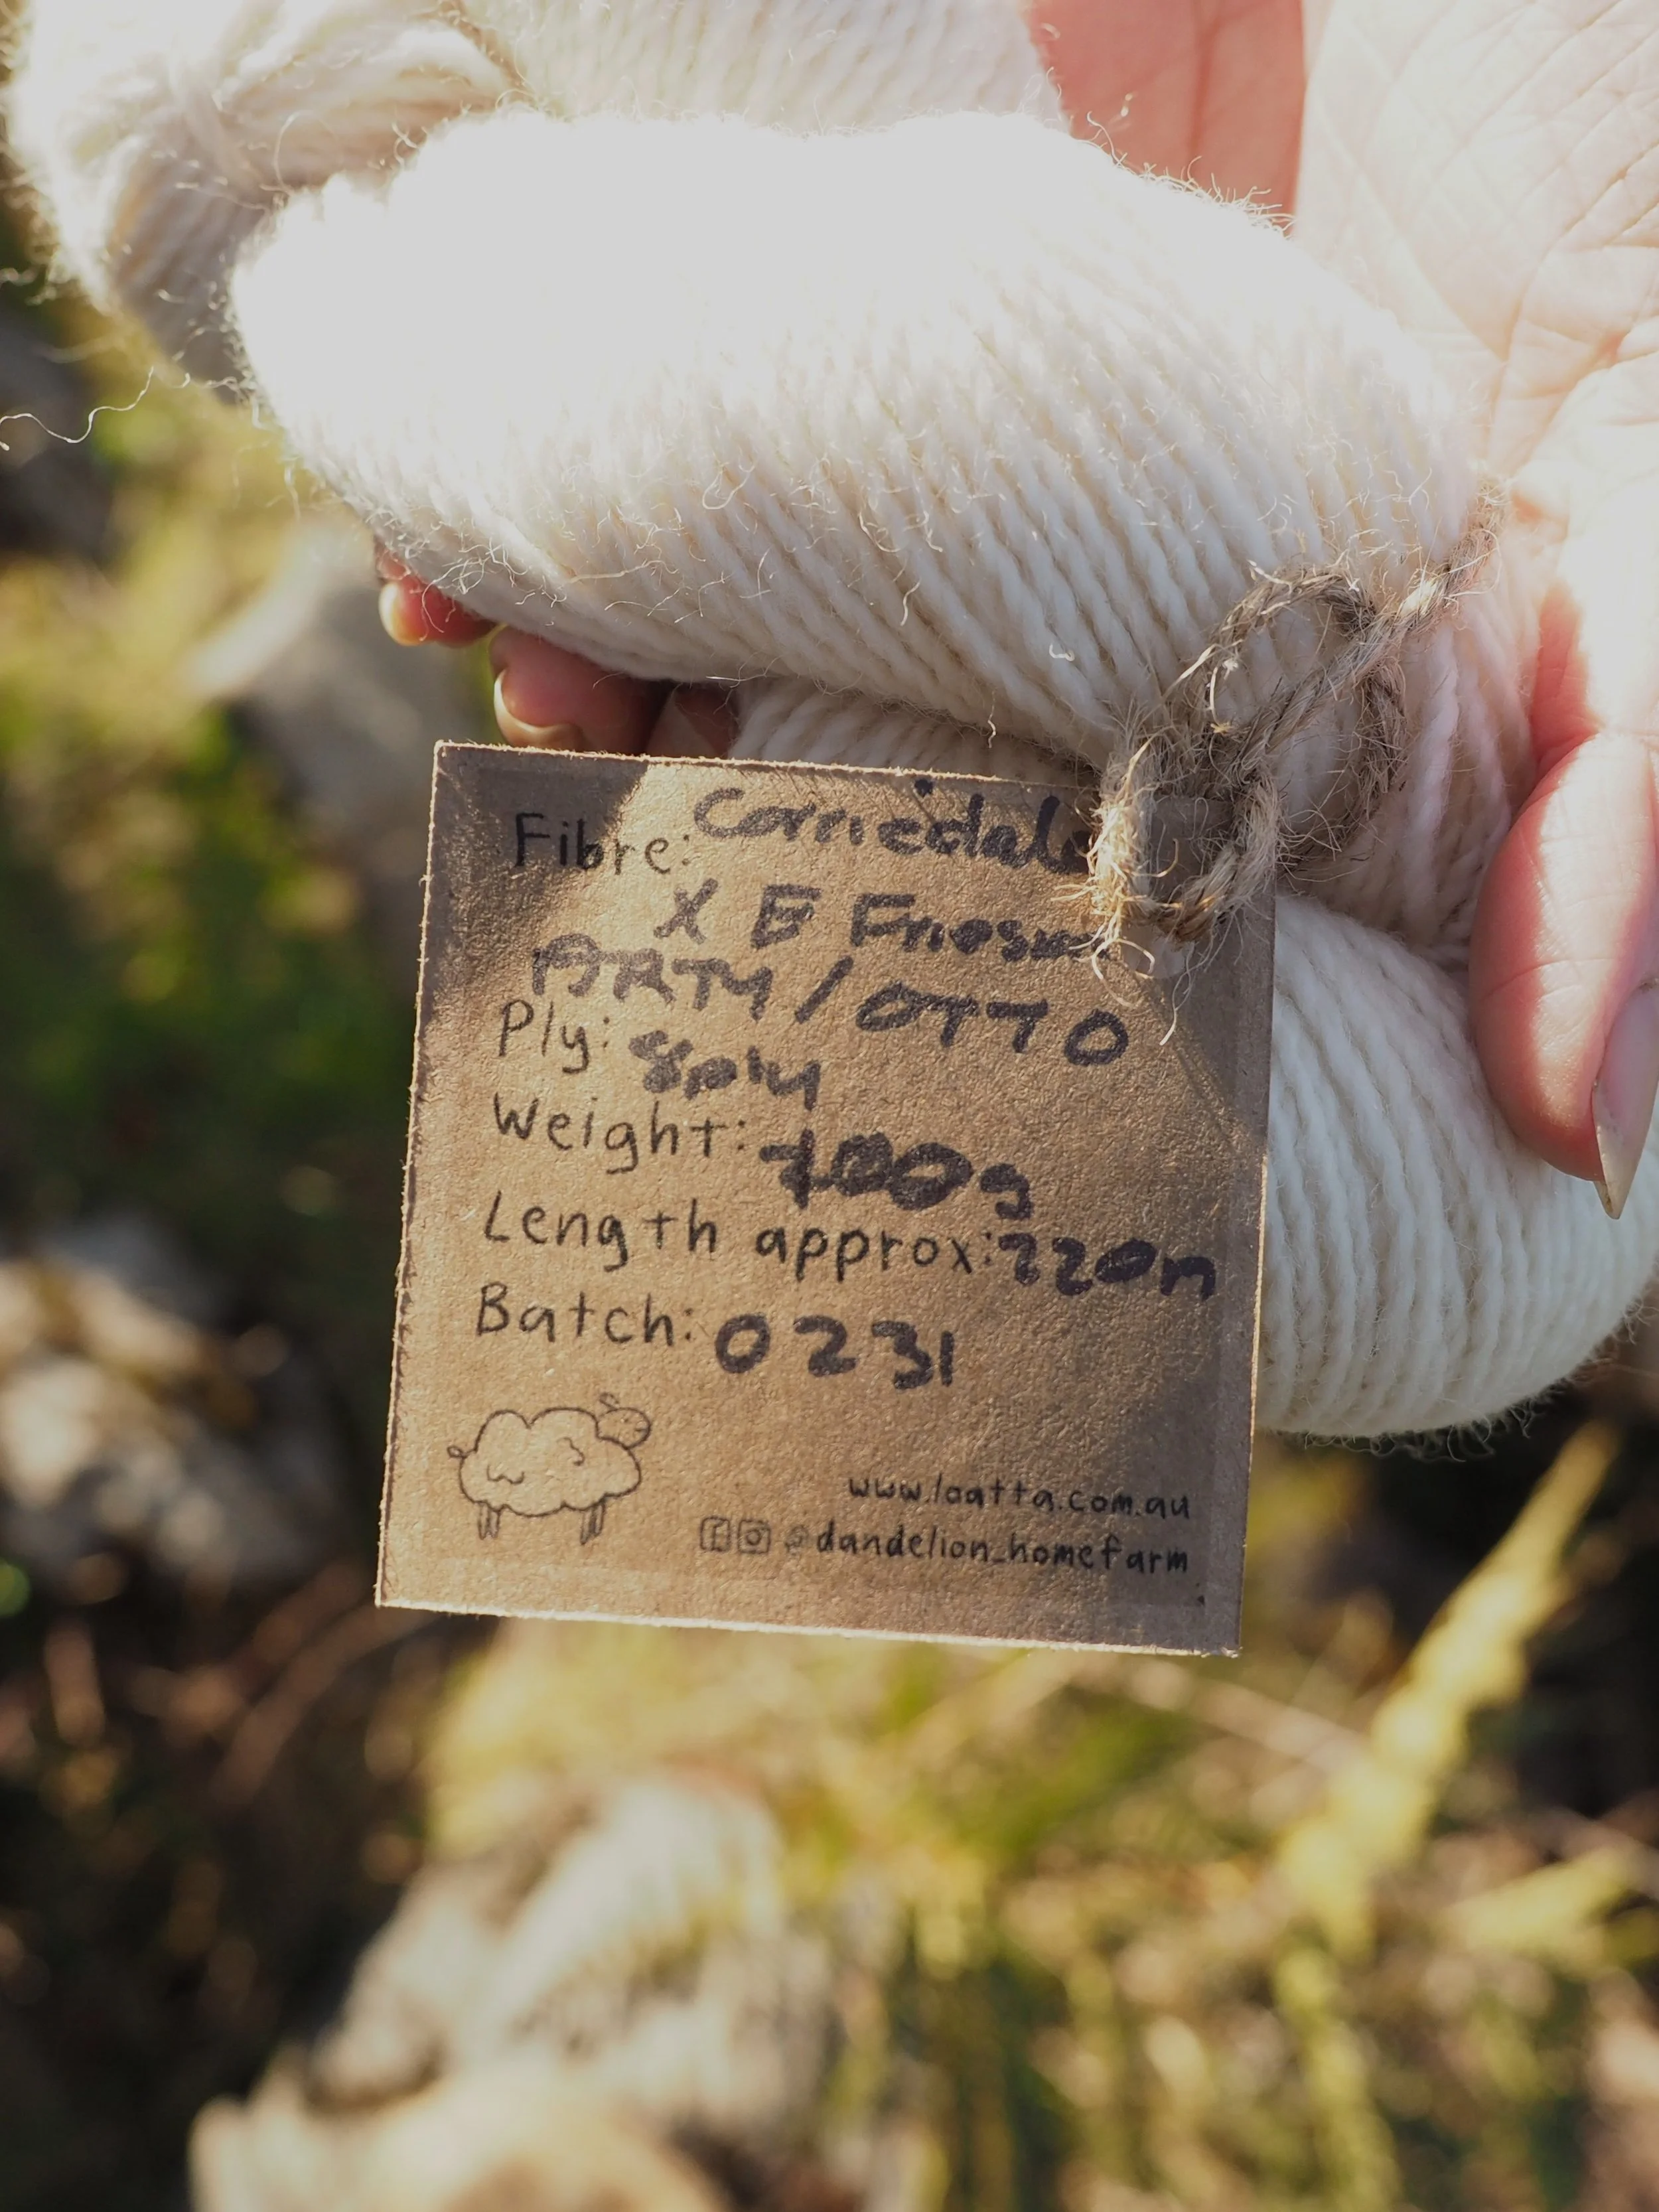 Fibre: Corriedale
X E Friesian
ARTY / OTTO
Ply: 8ply
Weight: 100g
Length approx: 220m
Batch: 0231
www.loatta.com.au
@dandelion_homefarm